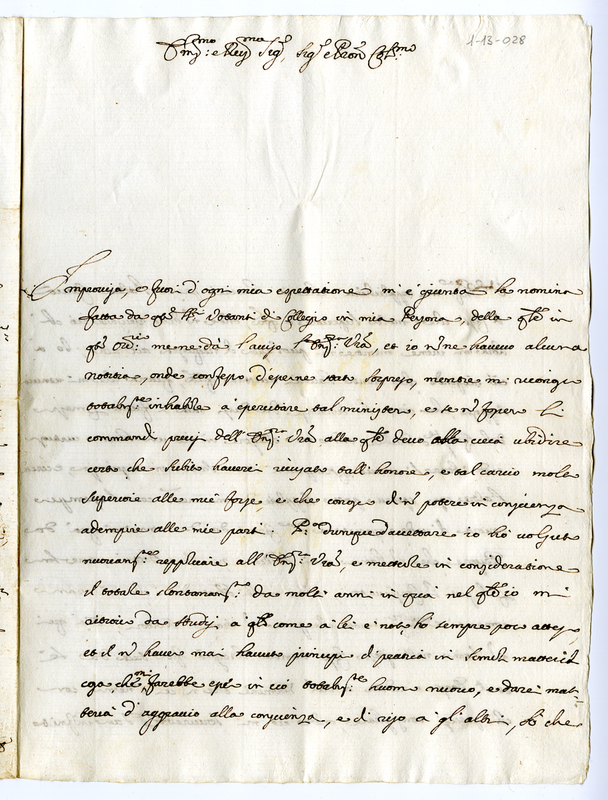 1-13-028
Ill.mo e Rev.mo Sig.r, Sig.r e Pron Col.mo
Improvisa, e fuori d'ogni mia espettatione mi è giunta la nomina
fatta da q.ti SS.ri Votanti di Collegio in mia Persona, della q.le in
q.to Ord.rio me ne dà l'aviso V.S. Ill.ma, et io nè ne havevo alcuna
notitia, onde confesso d'esserne stato sorpreso, mentre mi riconosco
totalm.te inhabile à esercitare tal ministero, e se nò fossero li
commandi precisi dell' Ill.ma alla q.le devo alla cieca ubidire
certo che subito haverei ricusato tall' honore, e tal carico molto
superiore alle mie forze, e che conosco di nò potere in conscienza
adempire alle mie parti. P.a dunque d'accettare io hò voluto
nuovam.te repplicare all' Ill.ma, e metterle in consideratione
il totale slontanam.to da molti anni in quà nel q.le io mi
ritrovo da studij à q.li come à lei è noto hò sempre poco atteso
et il nò haver mai havuto principij di pratica in simili materie
cosa che mi farebbe esser in ciò totalm.te huomo nuovo, e dare mat=
teria d'aggravio alla conscienza, e di riso à gl'altri, sì che